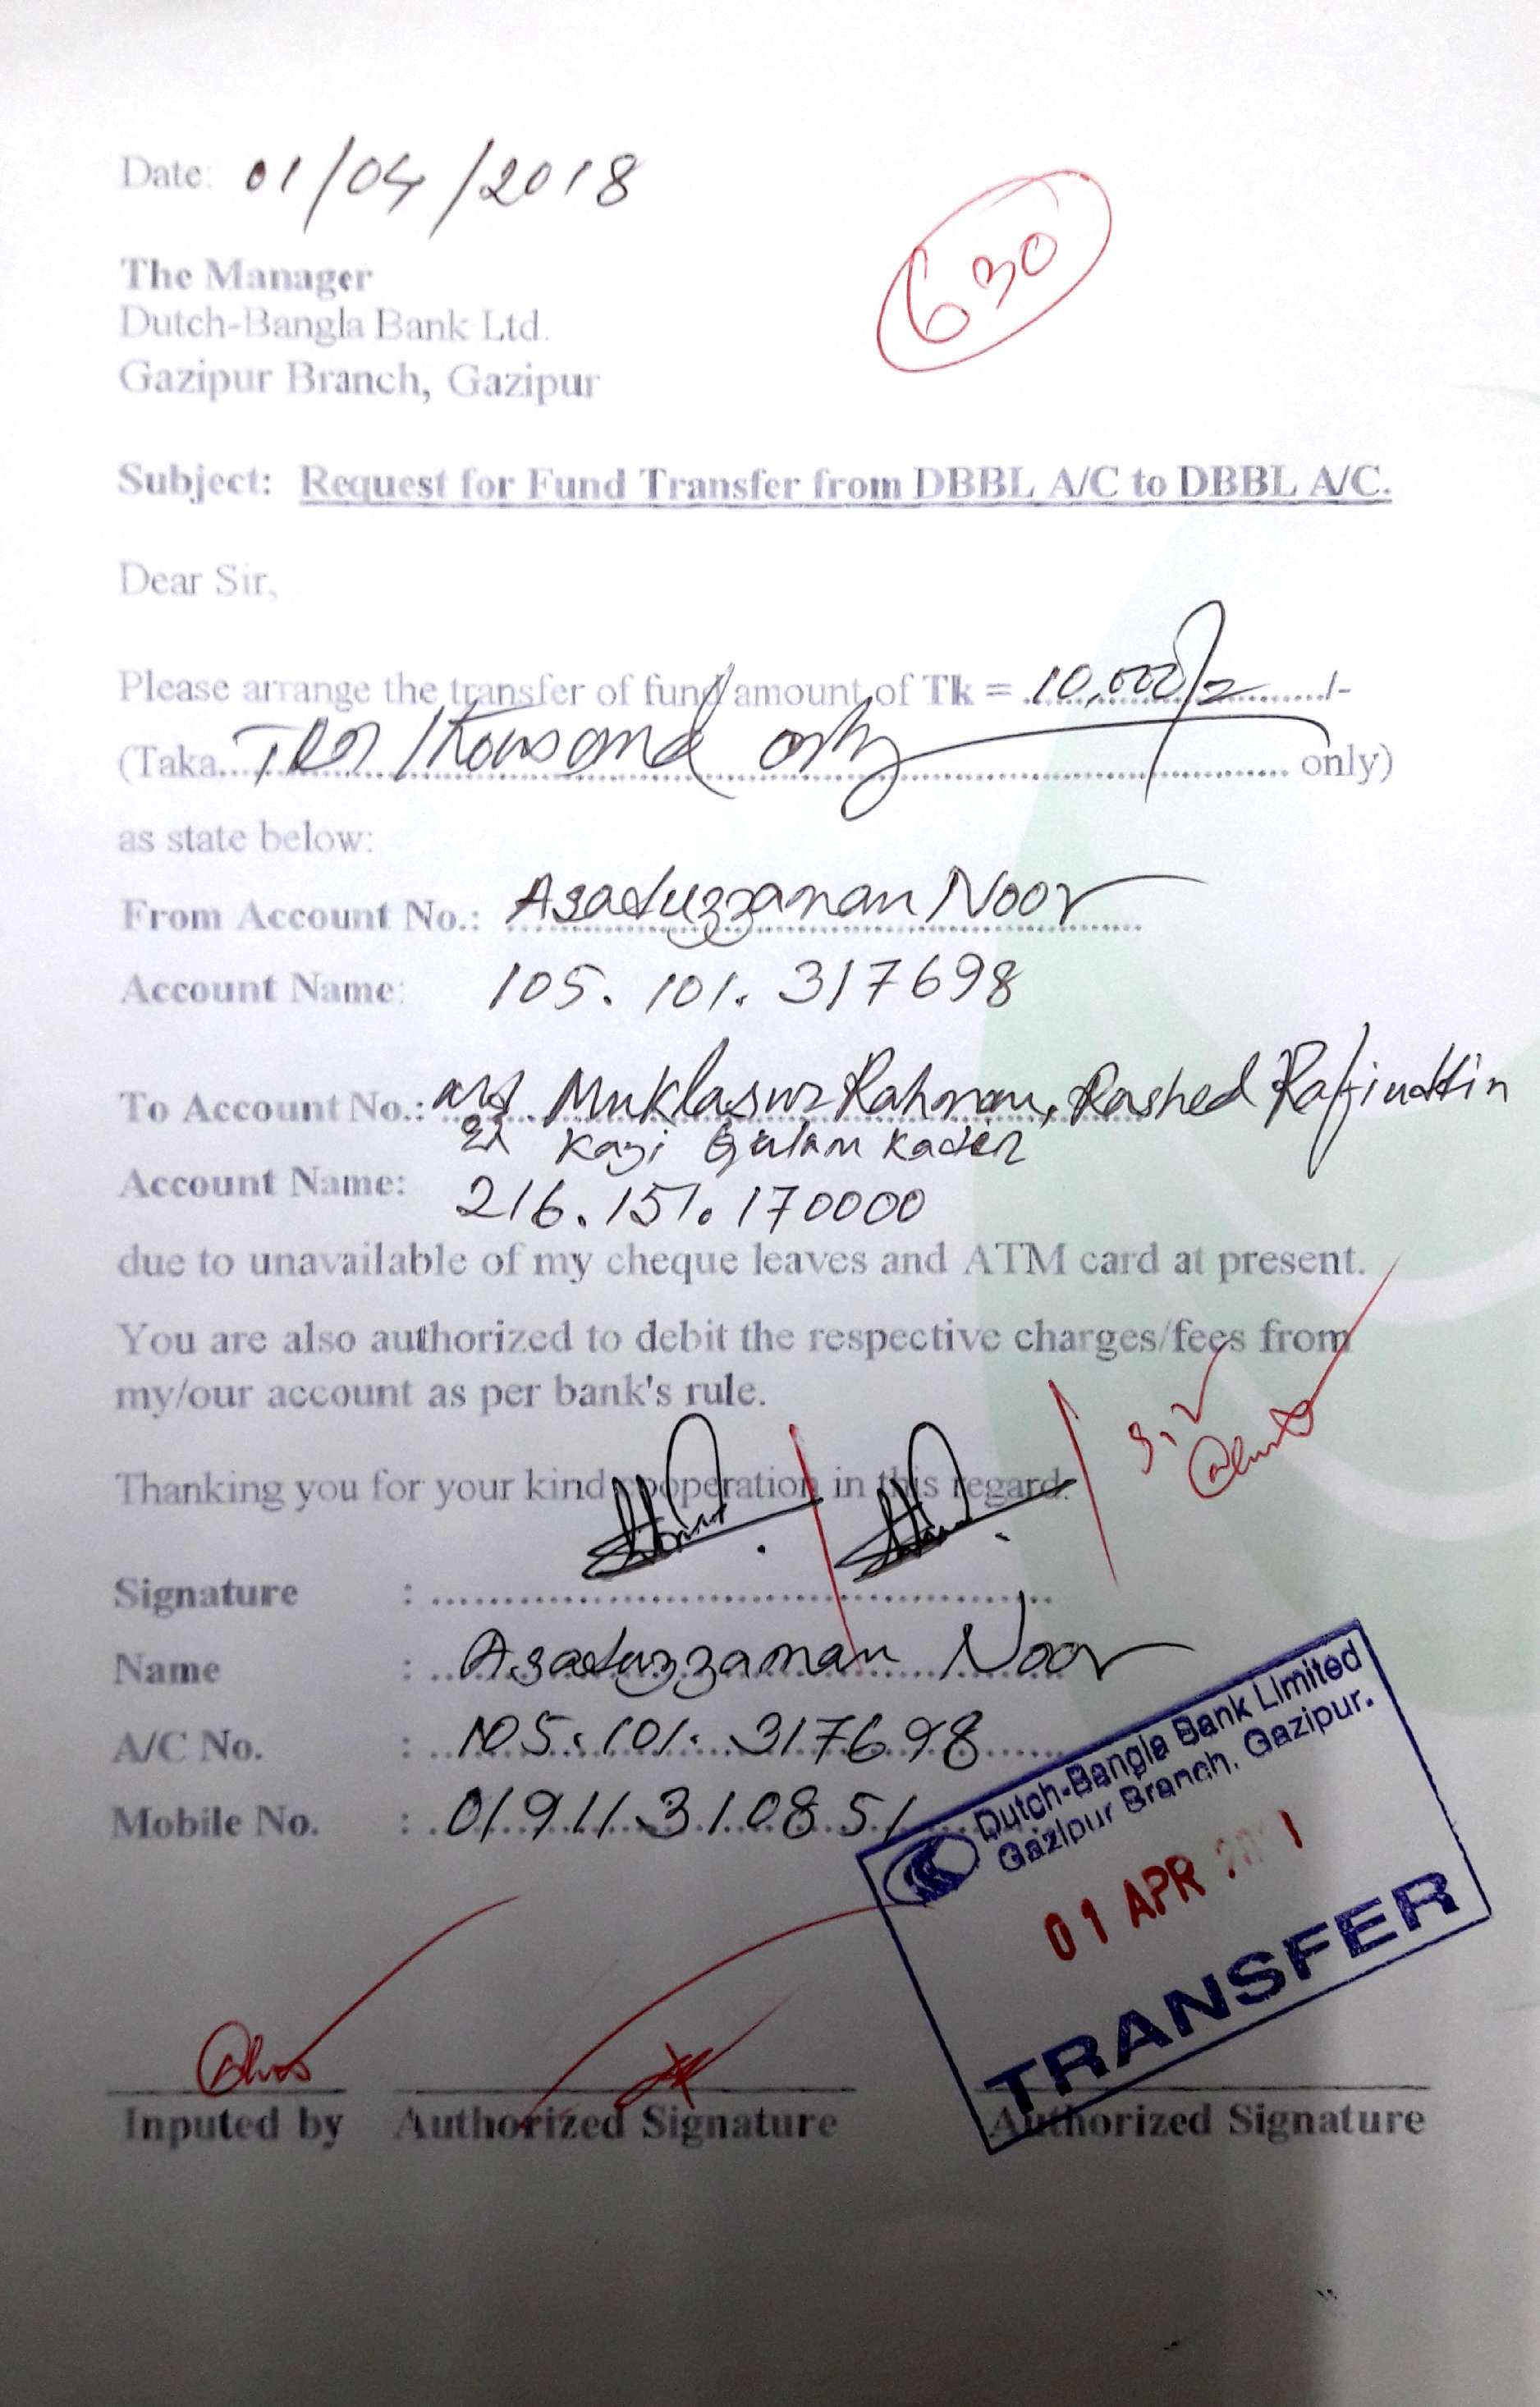 Date: 01/04/2018
630
The Manager
Dutch-Bangla Bank Ltd.
Gazipur Branch, Gazipur
Subject: Request for Fund Transfer from DBBL A/C to DBBL A/C.
Dear Sir,
Please arrange the transfer of fund amount of Tk = 10,000/= /-
(Taka Ten Thousand only only)
as state below:
From Account No.: Asaduzzaman Noor
Account Name: 105. 101. 317698
To Account No.: Md Muklasur Rahman, Rashed Rafiuddin
Kazi Gulam Kader
Account Name: 216.151.170000
due to unavailable of my cheque leaves and ATM card at present.
You are also authorized to debit the respective charges/fees from
my/our account as per bank's rule.
S.V
Thanking you for your kind cooperation in this regard.
Signature :
Name : Asaduzzaman Noor
A/C No. : 105. 101. 317698
Mobile No. : 01911310851
Dutch-Bangla Bank Limited
Gazipur Branch, Gazipur.
01 APR
TRANSFER
Inputed by Authorized Signature Authorized Signature